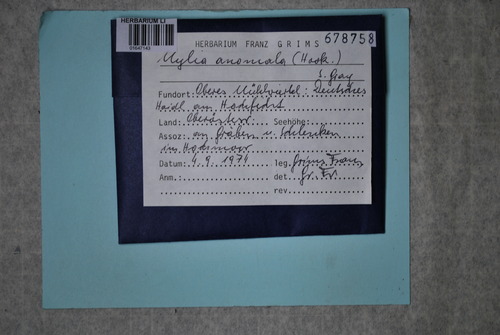 HERBARIUM LI
HERBARIUM FRANZ GRIMS 678758
Mylia anomala (Hook.)
S. Gray
Fundort: Oberes Mühlviertel: Deutsches
Haidl am Hochficht
Land: Oberösterr. Seehöhe:
Assoz: an Gräben u. Schlenken
im Hochmoor
Datum: 4.9.1974 leg. Grims Franz
Anm.: det Gr. Fr.
rev